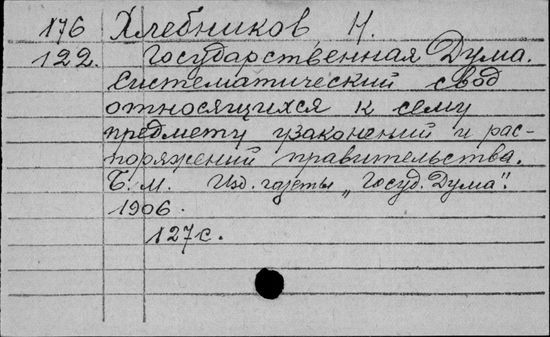 176 Хлебников Н.
122. Государственная Дума.
Систематический свод
относящихся к сему
предмету узаконений и рас-
поряжений правительства.
Б. м. Изд. газеты „Госуд. Дума".
1906.
127 с.